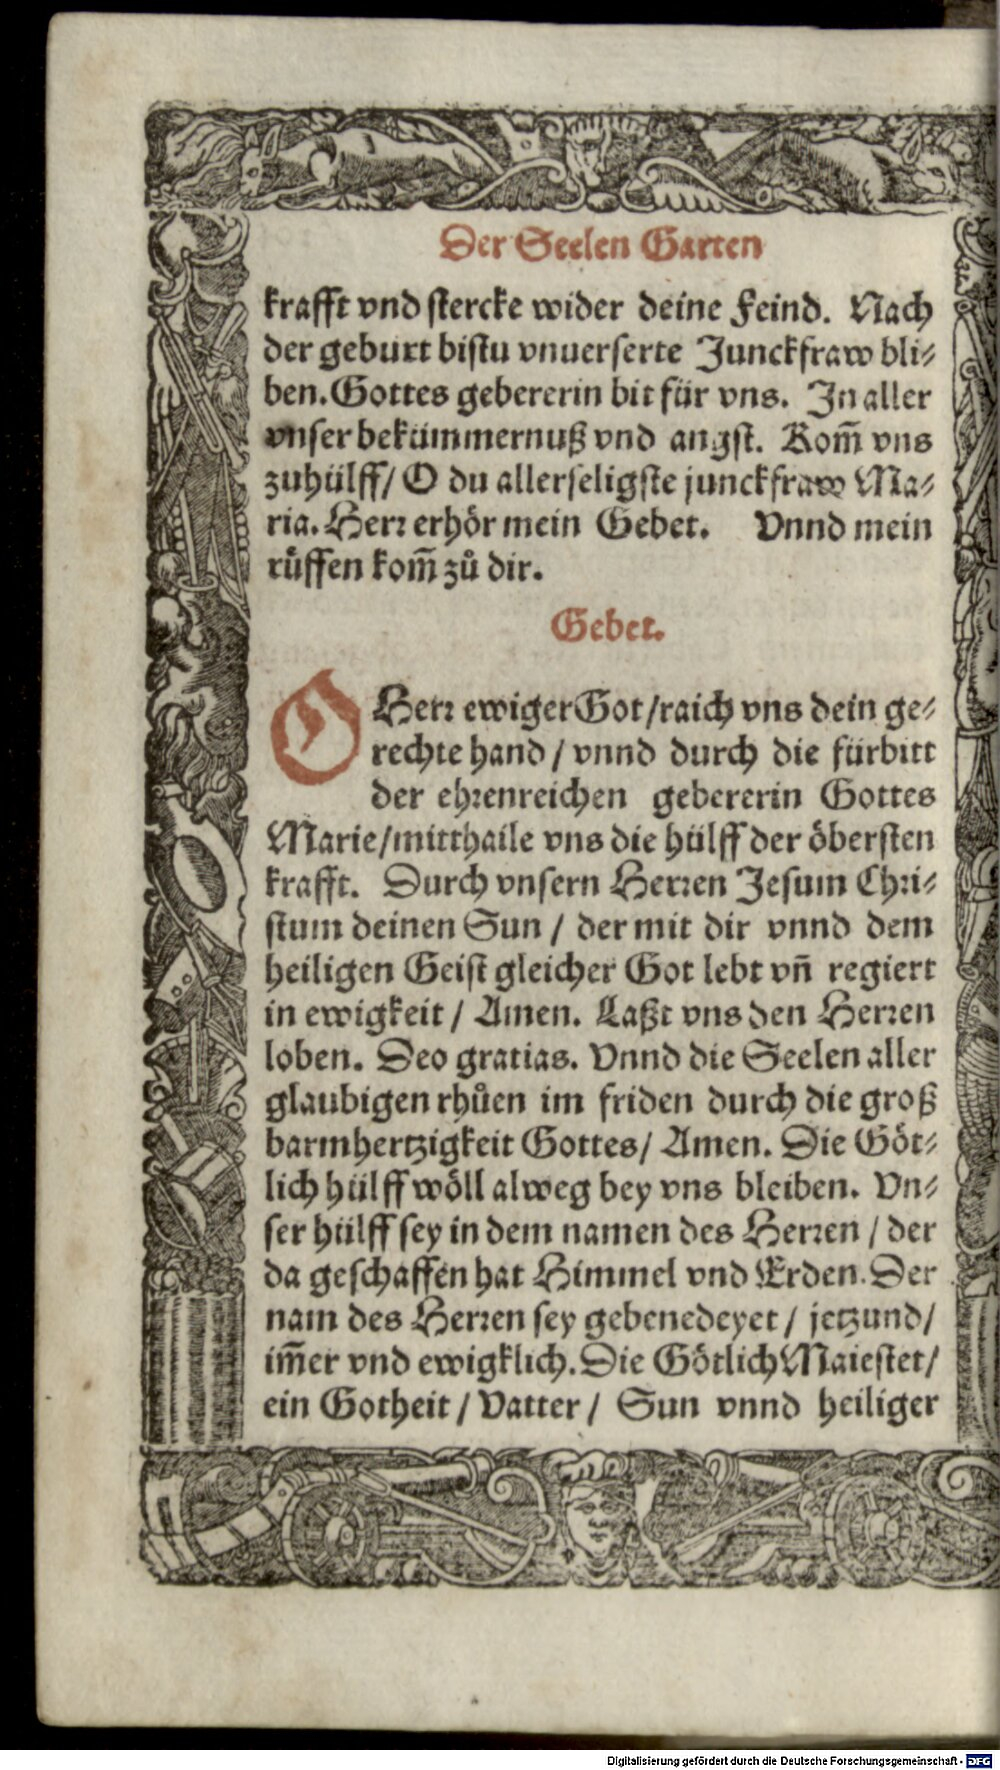 Der Seelen Garten
krafft vnd stercke wider deine Feind. Nach
der geburt bistu vnuerserte Junckfraw bli⸗
ben. Gottes gebererin bit für vns. In aller
vnser bekümmernuß vnd angst. Kom̃ vns
zuhülff/ O du allerseligste junckfraw Ma⸗
ria. Herr erhör mein Gebet. Vnnd mein
rüffen kom̃ zů dir.
Gebet.
O Herr ewiger Got/raich vns dein ge⸗
rechte hand/ vnnd durch die fürbitt
der ehrenreichen gebererin Gottes
Marie/mitthaile vns die hülff der öbersten
krafft. Durch vnsern Herren Jesum Chri⸗
stum deinen Sun / der mit dir vnnd dem
heiligen Geist gleicher Got lebt vñ regiert
in ewigkeit / Amen. Laßt vns den Herren
loben. Deo gratias. Vnnd die Seelen aller
glaubigen rhůen im friden durch die groß
barmhertzigkeit Gottes/ Amen. Die Göt⸗
lich hülff wöll alweg bey vns bleiben. Vn⸗
ser hülff sey in dem namen des Herren / der
da geschaffen hat Himmel vnd Erden. Der
nam des Herren sey gebenedeyet / jetzund/
im̃er vnd ewigklich. Die Götlich Maiestet/
ein Gotheit / Vatter / Sun vnnd heiliger
Digitalisierung gefördert durch die Deutsche Forschungsgemeinschaft - DFG